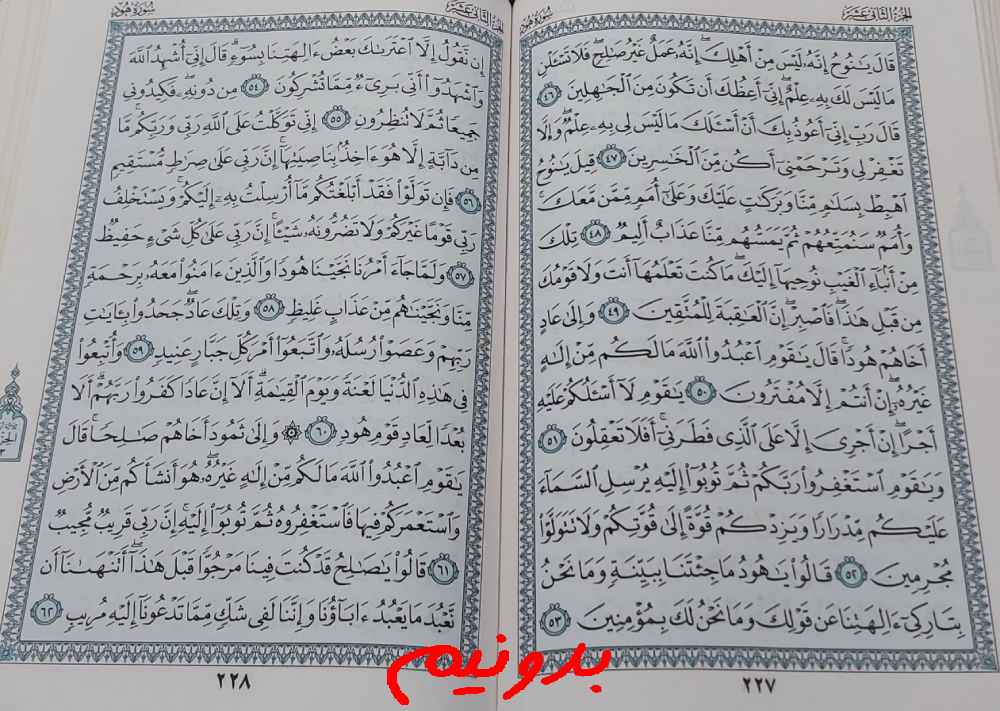 الجزء الثاني عشر
سورة هود
قَالَ يَٰنُوحُ إِنَّهُۥ لَيۡسَ مِنۡ أَهۡلِكَۖ إِنَّهُۥ عَمَلٌ غَيۡرُ صَٰلِحٖۖ فَلَا تَسۡـَٔلۡنِ
مَا لَيۡسَ لَكَ بِهِۦ عِلۡمٌۖ إِنِّيٓ أَعِظُكَ أَن تَكُونَ مِنَ ٱلۡجَٰهِلِينَ ٤٦
قَالَ رَبِّ إِنِّيٓ أَعُوذُ بِكَ أَنۡ أَسۡـَٔلَكَ مَا لَيۡسَ لِي بِهِۦ عِلۡمٞۖ وَإِلَّا
تَغۡفِرۡ لِي وَتَرۡحَمۡنِيٓ أَكُن مِّنَ ٱلۡخَٰسِرِينَ ٤٧ قِيلَ يَٰنُوحُ
ٱهۡبِطۡ بِسَلَٰمٖ مِّنَّا وَبَرَكَٰتٍ عَلَيۡكَ وَعَلَىٰٓ أُمَمٖ مِّمَّن مَّعَكَۚ
وَأُمَمٞ سَنُمَتِّعُهُمۡ ثُمَّ يَمَسُّهُم مِّنَّا عَذَابٌ أَلِيمٞ ٤٨ تِلۡكَ
مِنۡ أَنۢبَآءِ ٱلۡغَيۡبِ نُوحِيهَآ إِلَيۡكَۖ مَا كُنتَ تَعۡلَمُهَآ أَنتَ وَلَا قَوۡمُكَ
مِن قَبۡلِ هَٰذَاۖ فَٱصۡبِرۡۖ إِنَّ ٱلۡعَٰقِبَةَ لِلۡمُتَّقِينَ ٤٩ وَإِلَىٰ عَادٍ
أَخَاهُمۡ هُودٗاۚ قَالَ يَٰقَوۡمِ ٱعۡبُدُواْ ٱللَّهَ مَا لَكُم مِّنۡ إِلَٰهٍ
غَيۡرُهُۥٓۖ إِنۡ أَنتُمۡ إِلَّا مُفۡتَرُونَ ٥٠ يَٰقَوۡمِ لَآ أَسۡـَٔلُكُمۡ عَلَيۡهِ
أَجۡرًاۖ إِنۡ أَجۡرِيَ إِلَّا عَلَى ٱلَّذِي فَطَرَنِيٓۚ أَفَلَا تَعۡقِلُونَ ٥١
وَيَٰقَوۡمِ ٱسۡتَغۡفِرُواْ رَبَّكُمۡ ثُمَّ تُوبُوٓاْ إِلَيۡهِ يُرۡسِلِ ٱلسَّمَآءَ
عَلَيۡكُم مِّدۡرَارٗا وَيَزِدۡكُمۡ قُوَّةً إِلَىٰ قُوَّتِكُمۡ وَلَا تَتَوَلَّوۡاْ
مُجۡرِمِينَ ٥٢ قَالُواْ يَٰهُودُ مَا جِئۡتَنَا بِبَيِّنَةٖ وَمَا نَحۡنُ
بِتَارِكِيٓ ءَالِهَتِنَا عَن قَوۡلِكَ وَمَا نَحۡنُ لَكَ بِمُؤۡمِنِينَ ٥٣
٢٢٧
الجزء الثاني عشر
سورة هود
إِن نَّقُولُ إِلَّا ٱعۡتَرَىٰكَ بَعۡضُ ءَالِهَتِنَا بِسُوٓءٖۗ قَالَ إِنِّيٓ أُشۡهِدُ ٱللَّهَ
وَٱشۡهَدُوٓاْ أَنِّي بَرِيٓءٞ مِّمَّا تُشۡرِكُونَ ٥٤ مِن دُونِهِۦۖ فَكِيدُونِي
جَمِيعٗا ثُمَّ لَا تُنظِرُونِ ٥٥ إِنِّي تَوَكَّلۡتُ عَلَى ٱللَّهِ رَبِّي وَرَبِّكُمۚ مَّا
مِن دَآبَّةٍ إِلَّا هُوَ ءَاخِذُۢ بِنَاصِيَتِهَآۚ إِنَّ رَبِّي عَلَىٰ صِرَٰطٖ مُّسۡتَقِيمٖ
٥٦ فَإِن تَوَلَّوۡاْ فَقَدۡ أَبۡلَغۡتُكُم مَّآ أُرۡسِلۡتُ بِهِۦٓ إِلَيۡكُمۡۚ وَيَسۡتَخۡلِفُ
رَبِّي قَوۡمًا غَيۡرَكُمۡ وَلَا تَضُرُّونَهُۥ شَيۡـًٔاۚ إِنَّ رَبِّي عَلَىٰ كُلِّ شَيۡءٍ حَفِيظٞ
٥٧ وَلَمَّا جَآءَ أَمۡرُنَا نَجَّيۡنَا هُودٗا وَٱلَّذِينَ ءَامَنُواْ مَعَهُۥ بِرَحۡمَةٖ
مِّنَّا وَنَجَّيۡنَٰهُم مِّنۡ عَذَابٍ غَلِيظٖ ٥٨ وَتِلۡكَ عَادٞۖ جَحَدُواْ بِـَٔايَٰتِ
رَبِّهِمۡ وَعَصَوۡاْ رُسُلَهُۥ وَٱتَّبَعُوٓاْ أَمۡرَ كُلِّ جَبَّارٍ عَنِيدٖ ٥٩ وَأُتۡبِعُواْ
فِي هَٰذِهِ ٱلدُّنۡيَا لَعۡنَةٗ وَيَوۡمَ ٱلۡقِيَٰمَةِۗ أَلَآ إِنَّ عَادٗا كَفَرُواْ رَبَّهُمۡۗ أَلَا
بُعۡدٗا لِّعَادٖ قَوۡمِ هُودٖ ٦٠ ۞ وَإِلَىٰ ثَمُودَ أَخَاهُمۡ صَٰلِحٗاۚ قَالَ
يَٰقَوۡمِ ٱعۡبُدُواْ ٱللَّهَ مَا لَكُم مِّنۡ إِلَٰهٍ غَيۡرُهُۥۖ هُوَ أَنشَأَكُم مِّنَ ٱلۡأَرۡضِ
وَٱسۡتَعۡمَرَكُمۡ فِيهَا فَٱسۡتَغۡفِرُوهُ ثُمَّ تُوبُوٓاْ إِلَيۡهِۚ إِنَّ رَبِّي قَرِيبٞ مُّجِيبٞ
٦١ قَالُواْ يَٰصَٰلِحُ قَدۡ كُنتَ فِينَا مَرۡجُوّٗا قَبۡلَ هَٰذَآۖ أَتَنۡهَىٰنَآ أَن
نَّعۡبُدَ مَا يَعۡبُدُ ءَابَآؤُنَا وَإِنَّنَا لَفِي شَكّٖ مِّمَّا تَدۡعُونَآ إِلَيۡهِ مُرِيبٖ ٦٢
٢٢٨
بدونیم